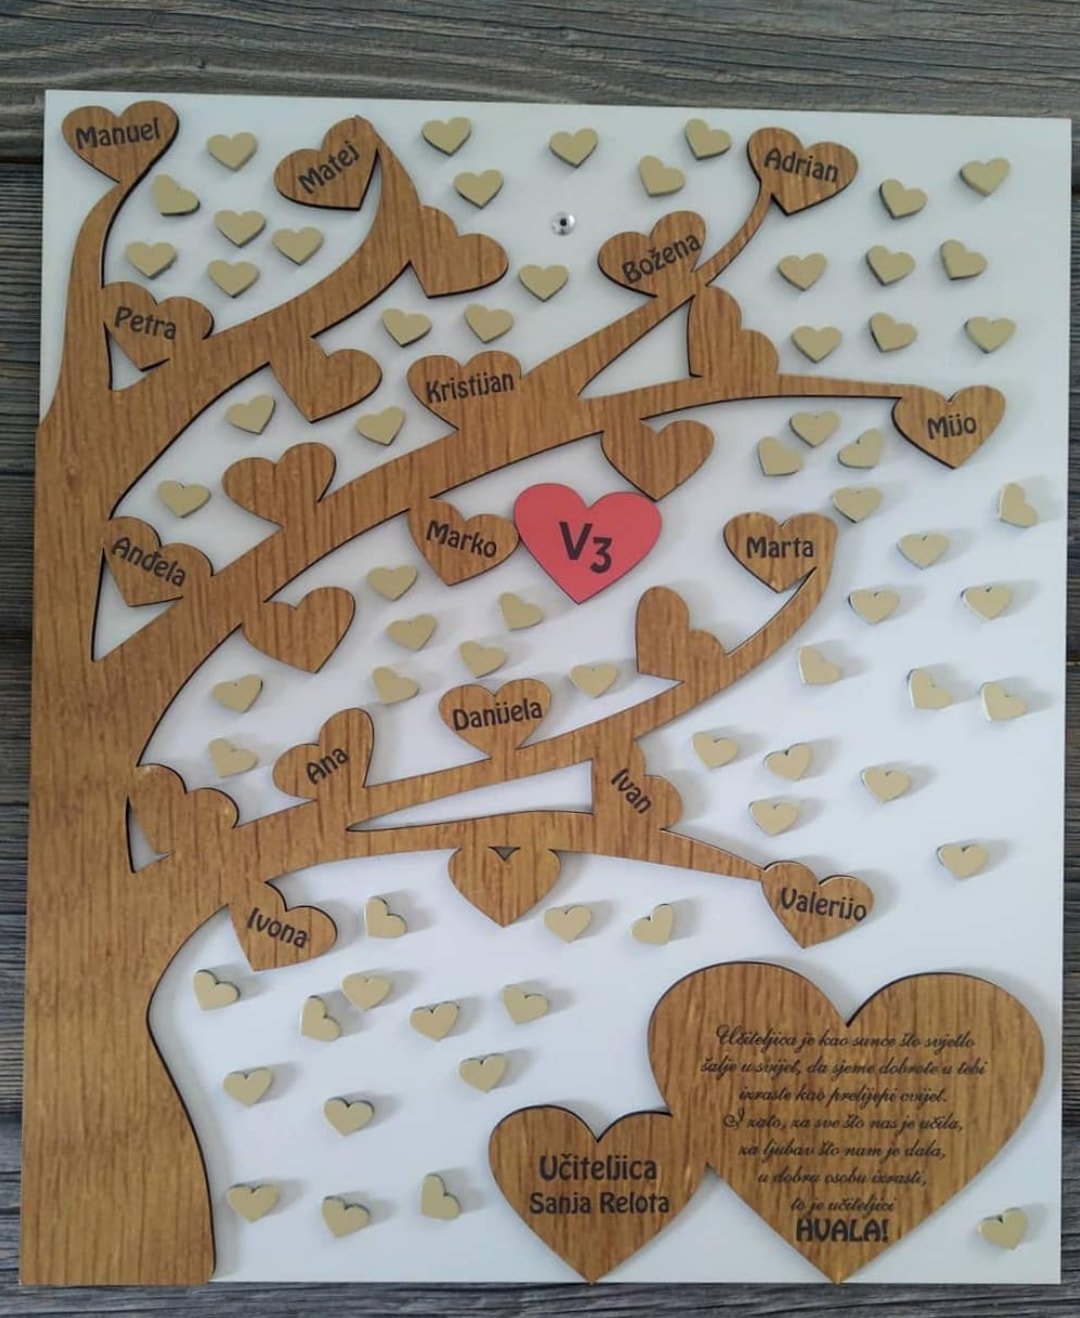 Manuel
Matej
Adrian
Božena
Petra
Kristijan
Mijo
Marko
V3
Anđela
Marta
Danijela
Ana
Ivan
Valerijo
Ivona
Učiteljica je kao sunce što svjetlo
šalje u svijet, da sjeme dobrote u tebi
izraste kao prelijepi cvijet.
I zato, za sve što nas je učila,
za ljubav što nam je dala,
u dobru osobu izrasti,
to je učiteljici
HVALA!
Učiteljica
Sanja Relota